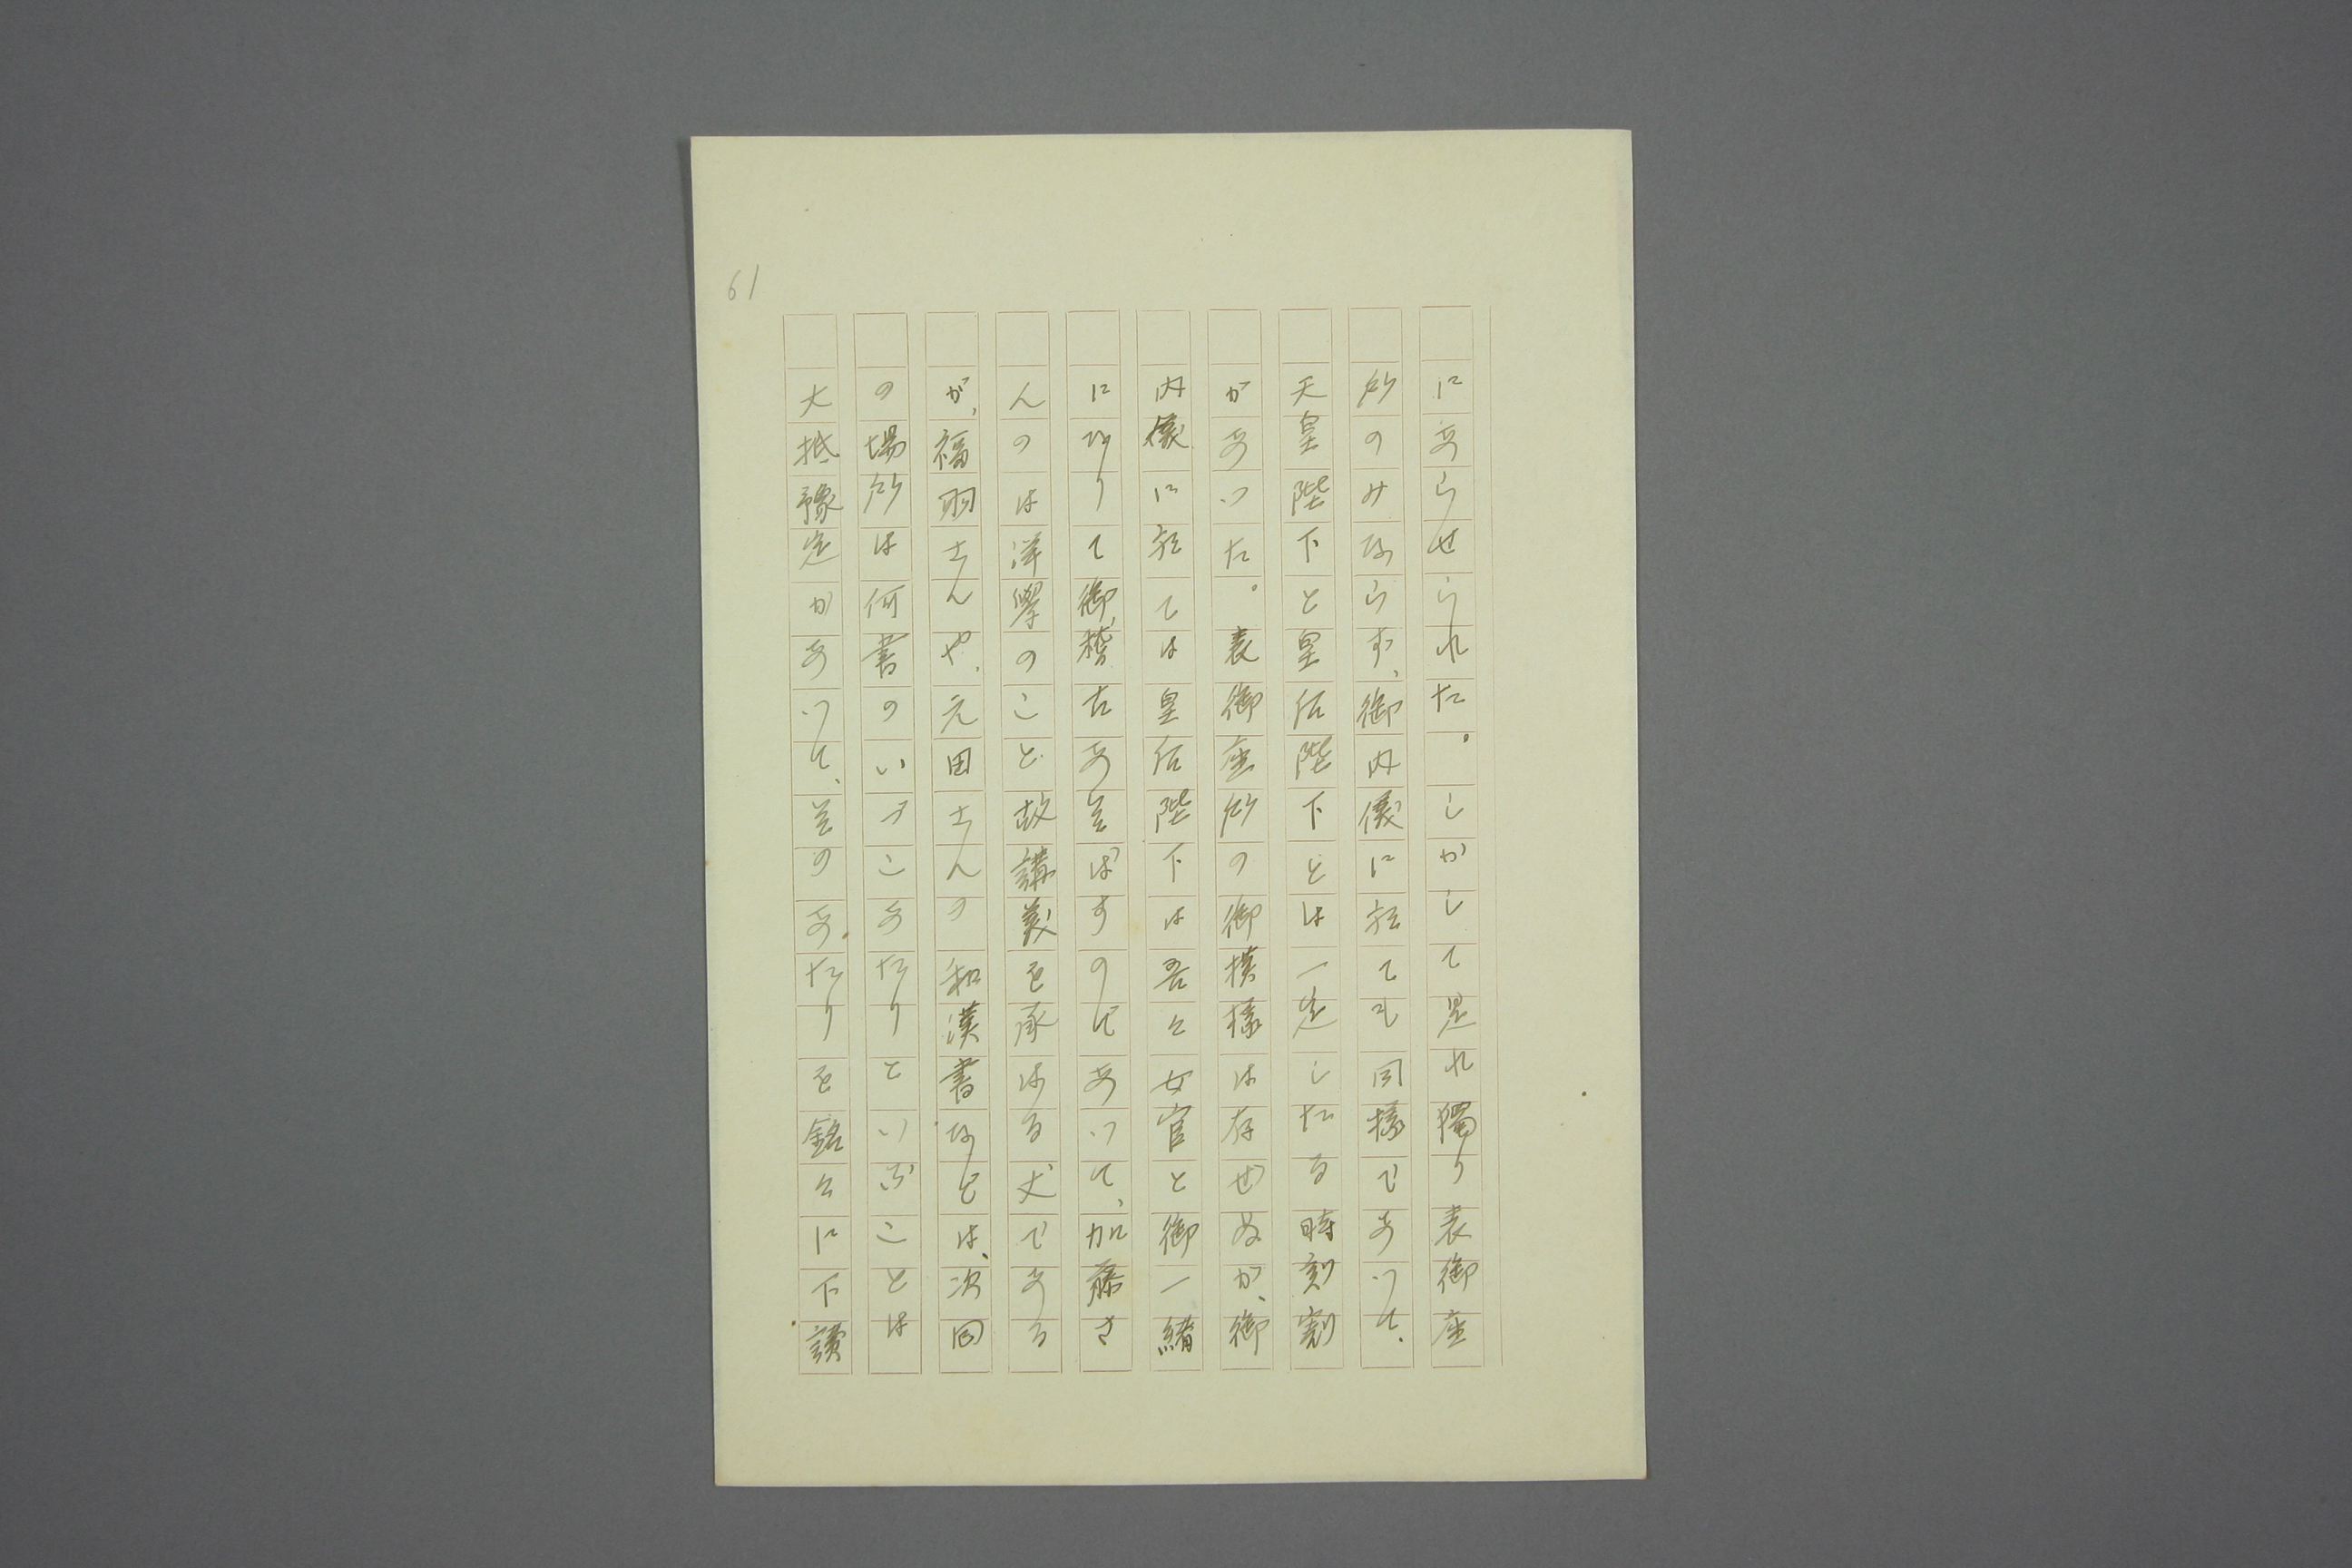 61
にあらせられた。しかして是れ獨り表御座
所のみならず、御内儀に於ても同様であつて、
天皇陛下と皇后陛下とは一定したる時刻割
があつた。表御座所の御模様は存ぜぬが、御
内儀に於ては皇后陛下は吾々女官と御一緒
になりて御稽古あそばすのであつて、加藤さ
んのは洋學のこと故講義を承はる丈である
が、福羽さんや、元田さんの和漢書などは、次回
の場所は何書のいづこあたりといふことは
大抵豫定があつて、そのあたりを銘々に下讀